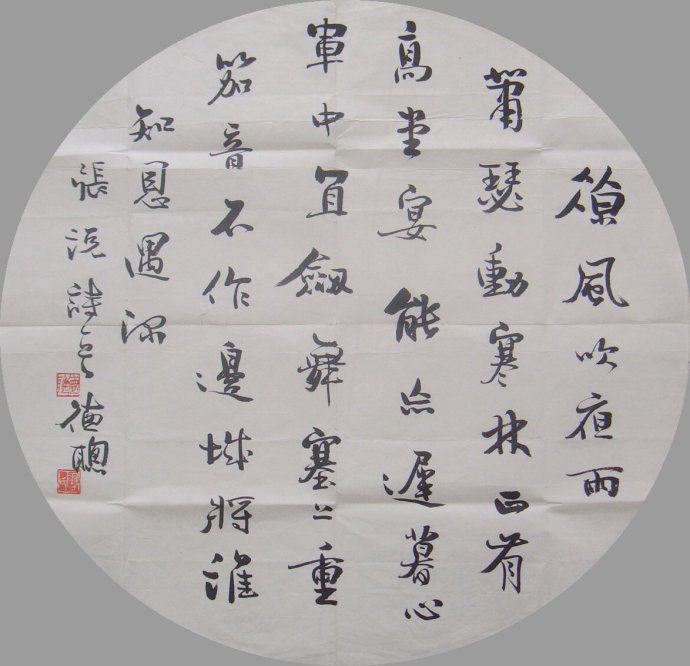 涼風吹夜雨
蕭瑟動寒林正有
高堂宴能忘遲暮心
軍中宜劍舞塞上重
笳音不作邊城將誰
知恩遇深
張説詩 德聰